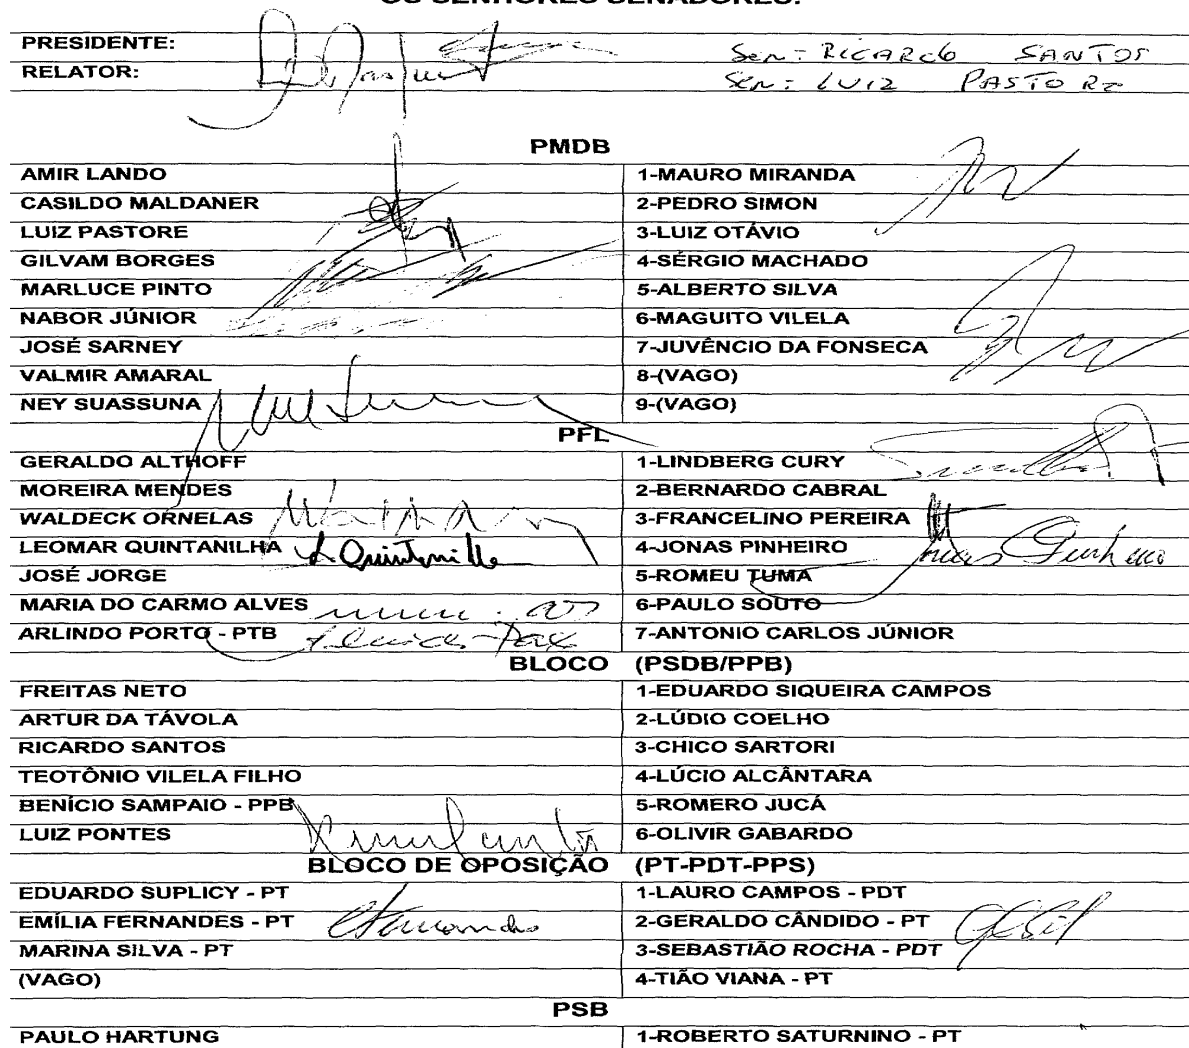 OS SENHORES SENADORES:
PRESIDENTE: Sen: RICARDO SANTOS
RELATOR: Sen: LUIZ PASTORE
PMDB
AMIR LANDO 1-MAURO MIRANDA
CASILDO MALDANER 2-PEDRO SIMON
LUIZ PASTORE 3-LUIZ OTÁVIO
GILVAM BORGES 4-SÉRGIO MACHADO
MARLUCE PINTO 5-ALBERTO SILVA
NABOR JÚNIOR 6-MAGUITO VILELA
JOSÉ SARNEY 7-JUVÊNCIO DA FONSECA
VALMIR AMARAL 8-(VAGO)
NEY SUASSUNA 9-(VAGO)
PFL
GERALDO ALTHOFF 1-LINDBERG CURY
MOREIRA MENDES 2-BERNARDO CABRAL
WALDECK ORNELAS 3-FRANCELINO PEREIRA
LEOMAR QUINTANILHA 4-JONAS PINHEIRO
JOSÉ JORGE 5-ROMEU TUMA
MARIA DO CARMO ALVES 6-PAULO SOUTO
ARLINDO PORTO - PTB 7-ANTONIO CARLOS JÚNIOR
BLOCO (PSDB/PPB)
FREITAS NETO 1-EDUARDO SIQUEIRA CAMPOS
ARTUR DA TÁVOLA 2-LÚDIO COELHO
RICARDO SANTOS 3-CHICO SARTORI
TEOTÔNIO VILELA FILHO 4-LÚCIO ALCÂNTARA
BENÍCIO SAMPAIO - PPB 5-ROMERO JUCÁ
LUIZ PONTES 6-OLIVIR GABARDO
BLOCO DE OPOSIÇÃO (PT-PDT-PPS)
EDUARDO SUPLICY - PT 1-LAURO CAMPOS - PDT
EMÍLIA FERNANDES - PT 2-GERALDO CÂNDIDO - PT
MARINA SILVA - PT 3-SEBASTIÃO ROCHA - PDT
(VAGO) 4-TIÃO VIANA - PT
PSB
PAULO HARTUNG 1-ROBERTO SATURNINO - PT